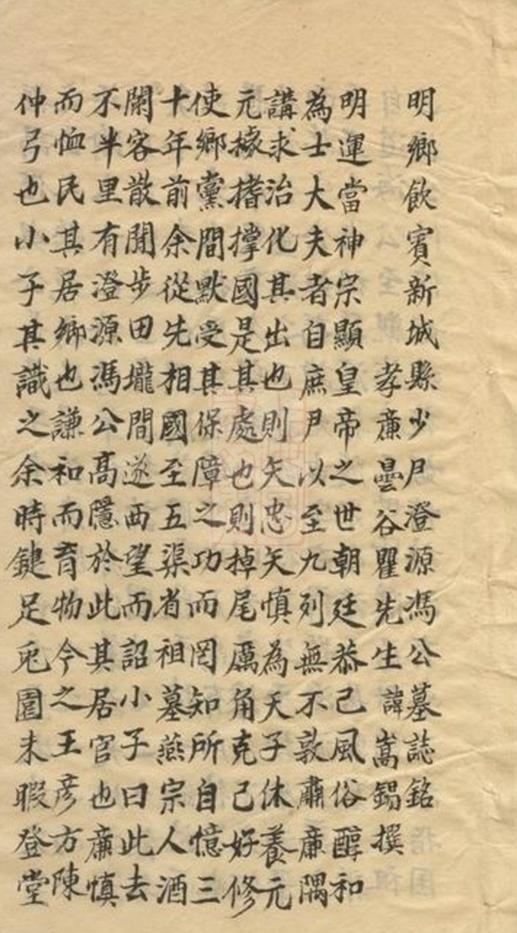 明鄉飲賓新城縣少尹澄源馮公墓誌銘
孝亷曇谷瞿先生諱嵩錫撰
明運當神宗顯皇帝之世朝廷恭己風俗醇和
為士大夫者自庶尹以至九列無不敦肅亷隅
講求治化其出也則矢忠矢慎為天子休養元
元掾搘撐國是其處也則掉尾厲角克己好修
使鄉黨間默受其保障之功而罔知所自憶三
十年前余從先相國至五渠省祖墓燕宗人酒
闌客散閒步田壠間遂西望而詔小子曰此去
不半里有澄源馮公高隱於此其居官也亷慎
而恤民其居鄉也謙和而育物今之王彥方陳
仲弓也小子其識之余時鍵足兎園未暇登堂